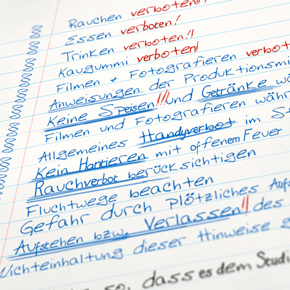 Rauchen verboten!!
Essen verboten!
Trinken verboten!!
Kaugummi verboten!
Filmen + Fotografieren
Anweisungen der
Keine Speisen!!! und Getränke
Filmen und Fotografieren
Allgemeines Handyverbot im
Kein Hantieren mit offenem Feuer
Rauchverbot berücksichtigen
Fluchtwege beachten
Gefahr durch Plötzliches
Aufstehen bzw. Verlassen!! des
Nichteinhaltung dieser Hinweise
so, dass es dem